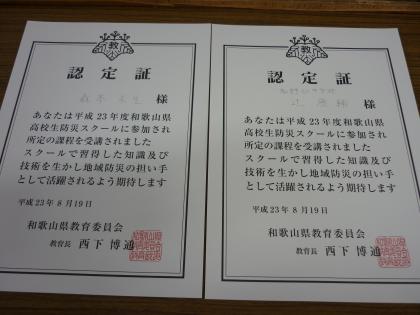 認定証
様
あなたは平成23年度和歌山県
高校生防災スクールに参加され
所定の課程を受講されました
スクールで習得した知識及び
技術を生かし地域防災の担い手
として活躍されるよう期待します
平成23年8月19日
和歌山県教育委員会
教育長 西下博通
認定証
様
あなたは平成23年度和歌山県
高校生防災スクールに参加され
所定の課程を受講されました
スクールで習得した知識及び
技術を生かし地域防災の担い手
として活躍されるよう期待します
平成23年8月19日
和歌山県教育委員会
教育長 西下博通